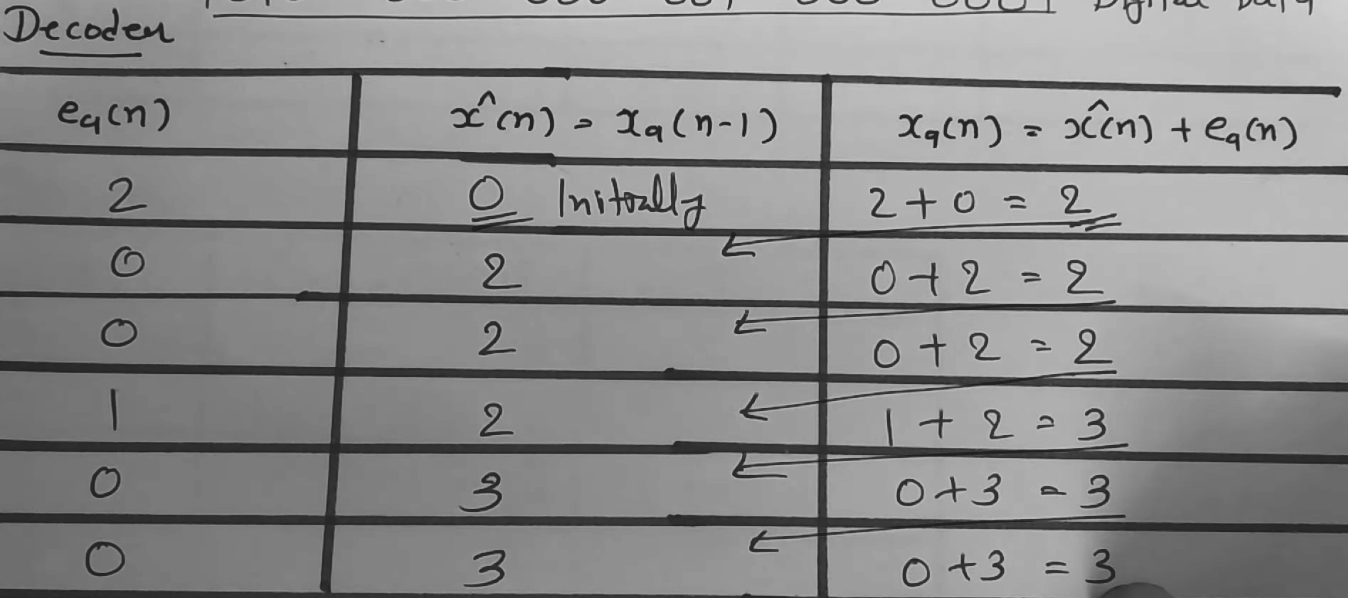 Digital Data
Decoder
eq(n) x̂(n) = xq(n-1) xq(n) = x̂(n) + eq(n)
2 0 Initially 2 + 0 = 2
0 2 0 + 2 = 2
0 2 0 + 2 = 2
1 2 1 + 2 = 3
0 3 0 + 3 = 3
0 3 0 + 3 = 3